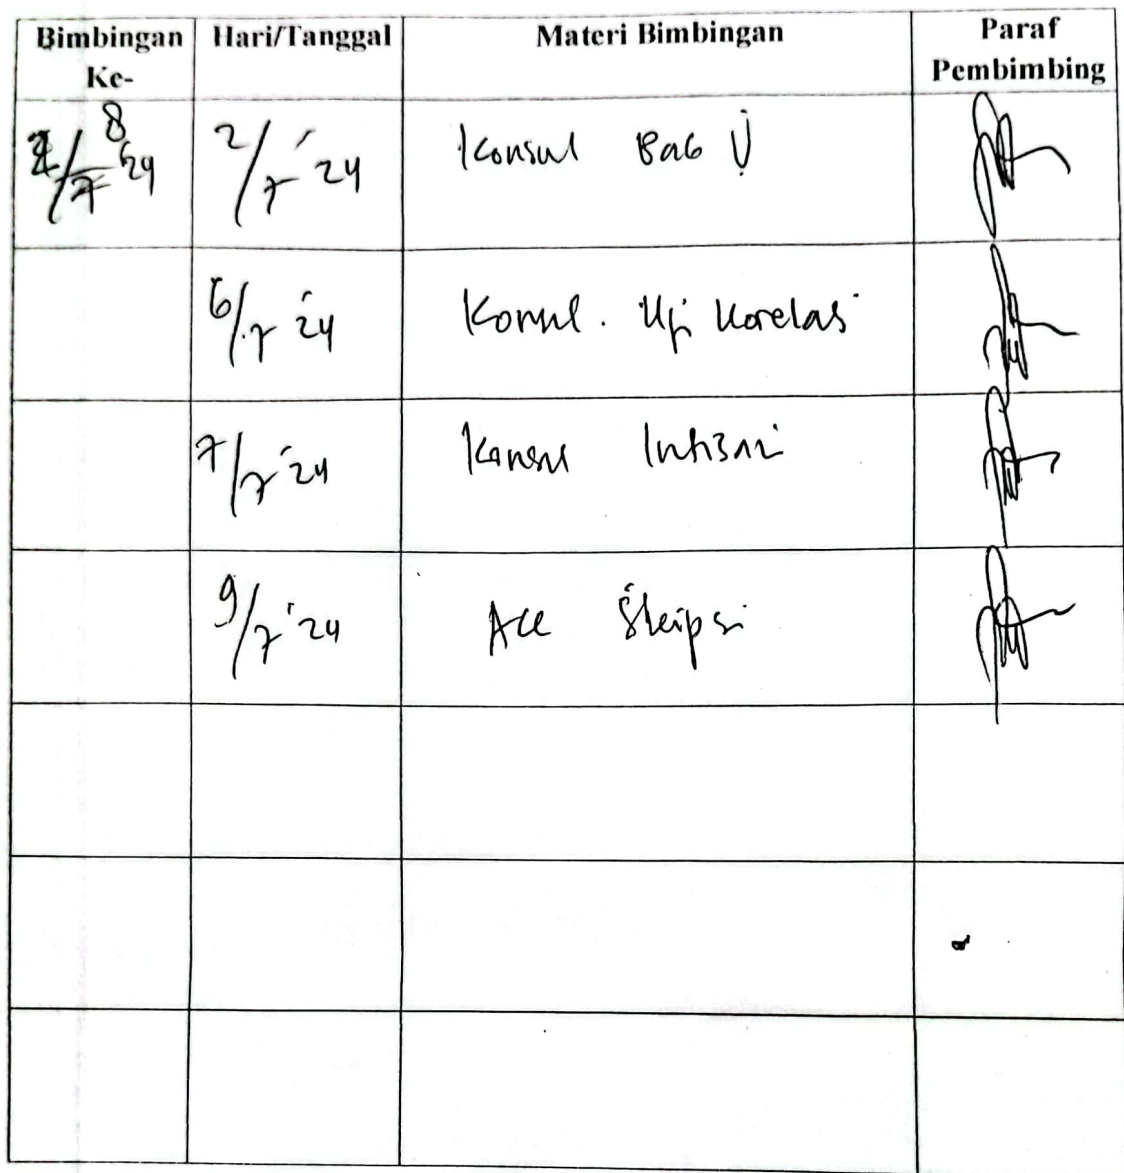 Bimbingan Ke-
Hari/Tanggal
Materi Bimbingan
Paraf Pembimbing
8
2/7 '24
2/7 '24
Konsul Bab V
6/7 '24
Konsul. Uji Korelasi
7/7 '24
Konsul Intisari
9/7 '24
Acc Skripsi